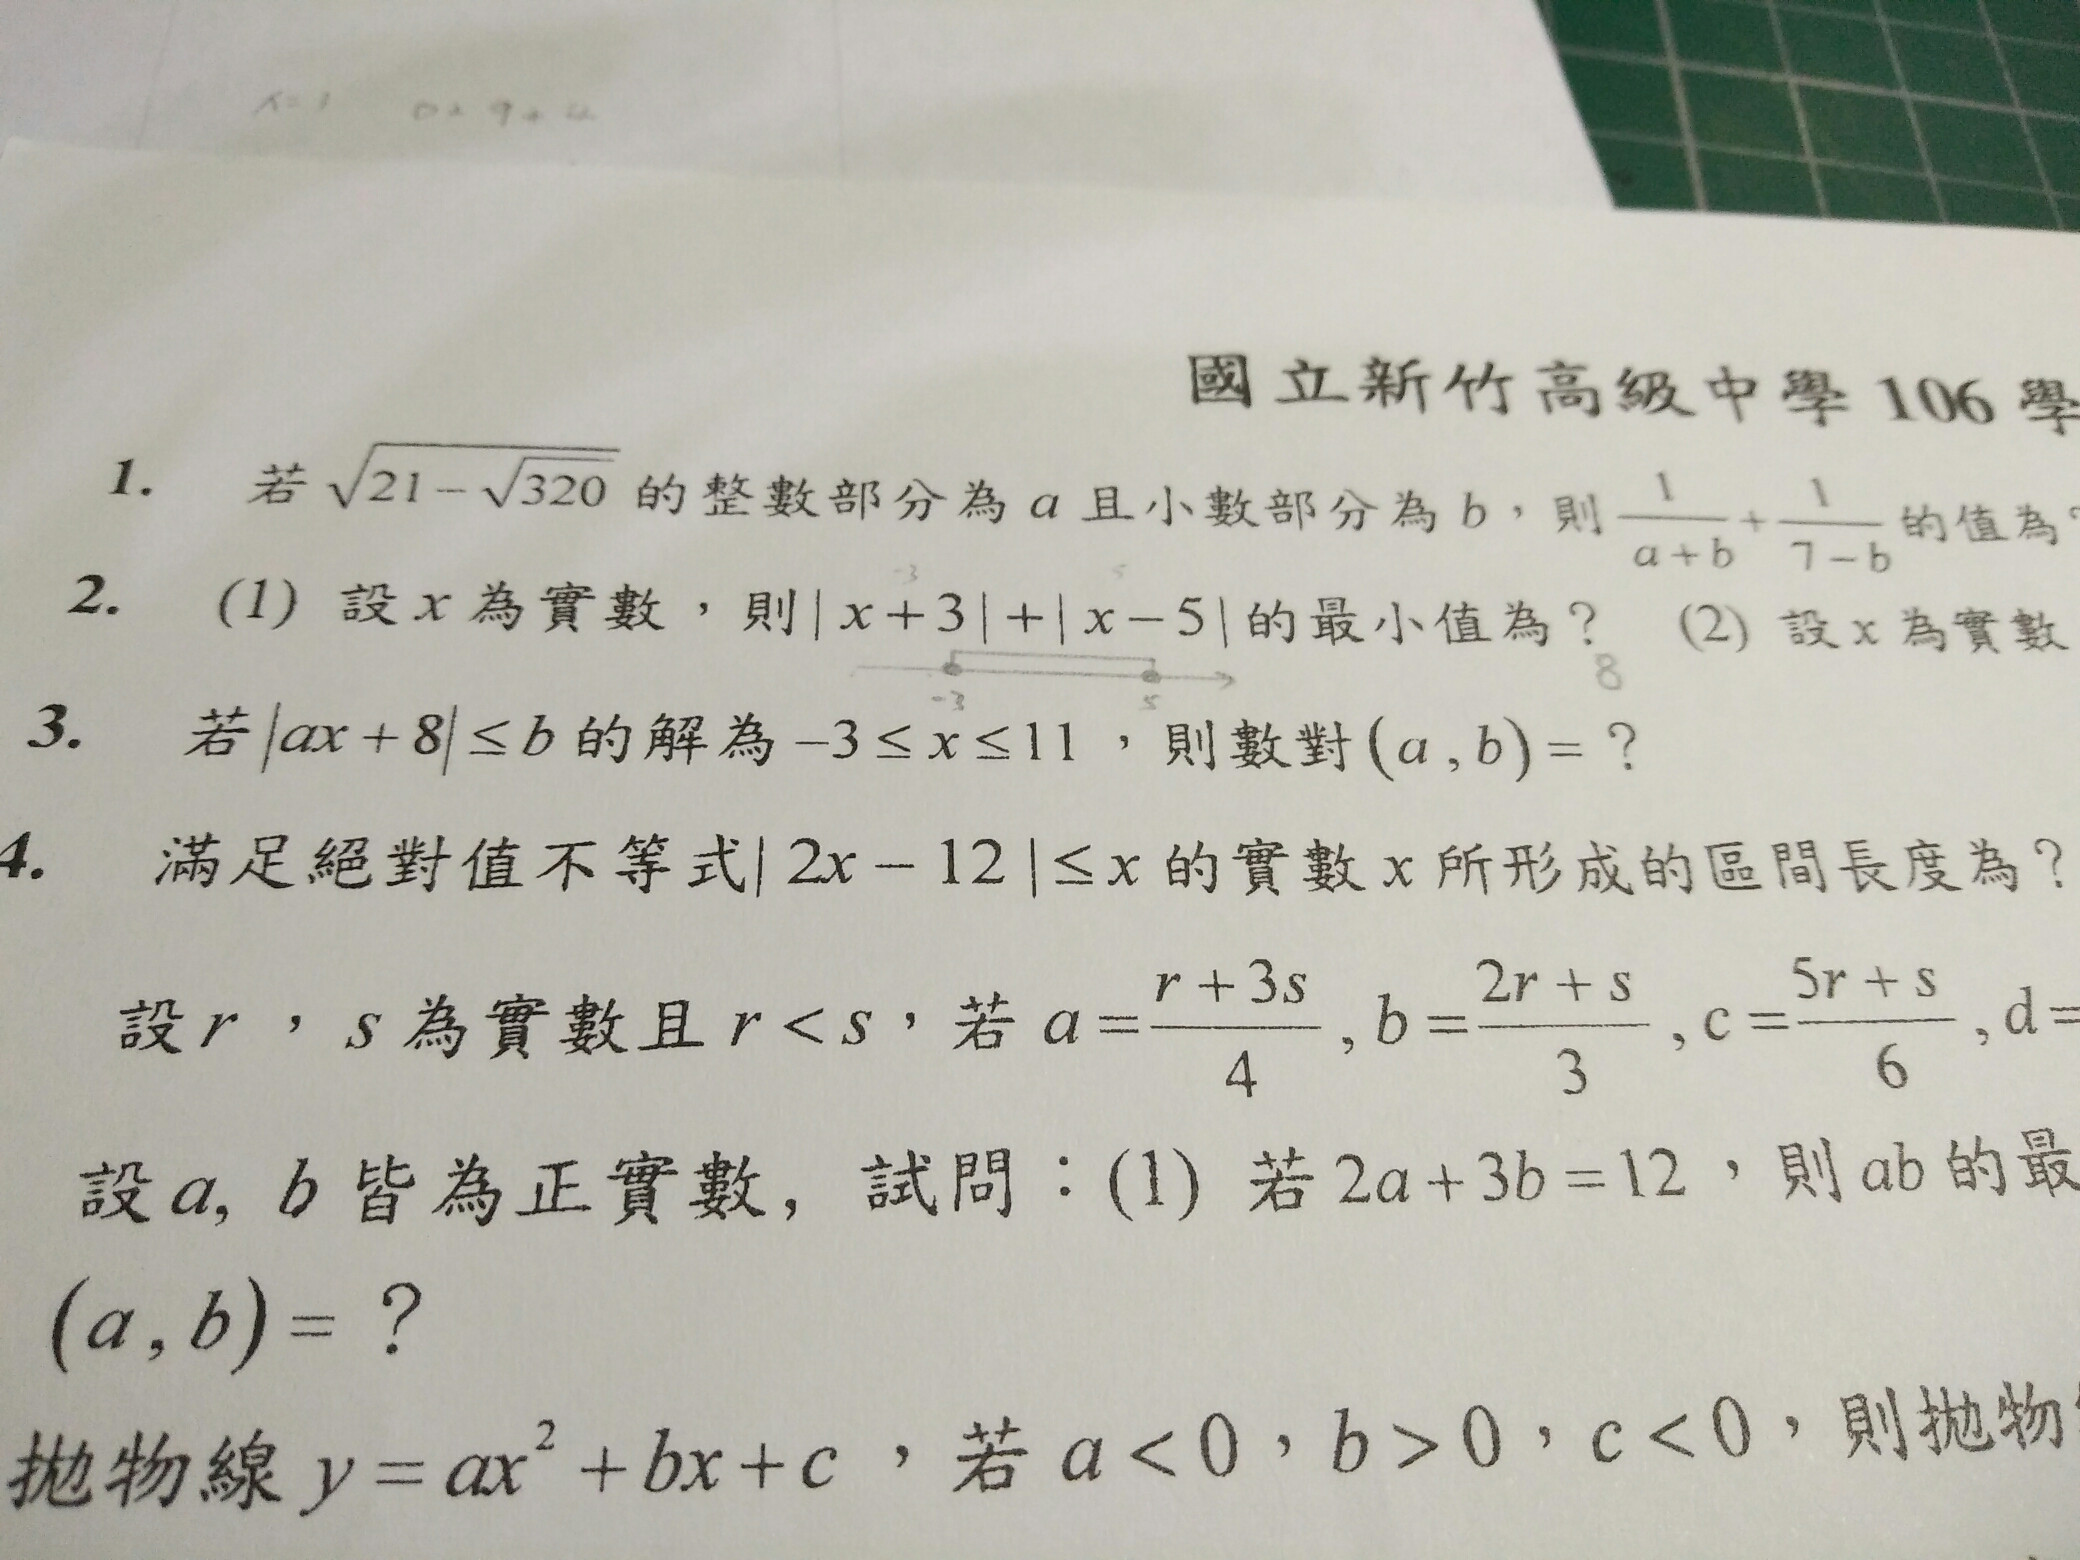 國立新竹高級中學 106 學
1. 若 √(21-√320) 的整數部分為 a 且小數部分為 b,則 1/(a+b) + 1/(7-b) 的值為?
-3 5
2. (1) 設 x 為實數,則 | x+3 | + | x-5 | 的最小值為? (2) 設 x 為實數
8
-3 5
3. 若 |ax+8| ≤ b 的解為 -3 ≤ x ≤ 11 ,則數對 (a,b) = ?
4. 滿足絕對值不等式 | 2x-12 | ≤ x 的實數 x 所形成的區間長度為?
設 r , s 為實數且 r < s,若 a = (r+3s)/4 , b = (2r+s)/3 , c = (5r+s)/6 , d =
設 a, b 皆為正實數, 試問:(1) 若 2a+3b=12 ,則 ab 的最
(a,b) = ?
拋物線 y = ax² + bx + c ,若 a < 0,b > 0,c < 0,則拋物